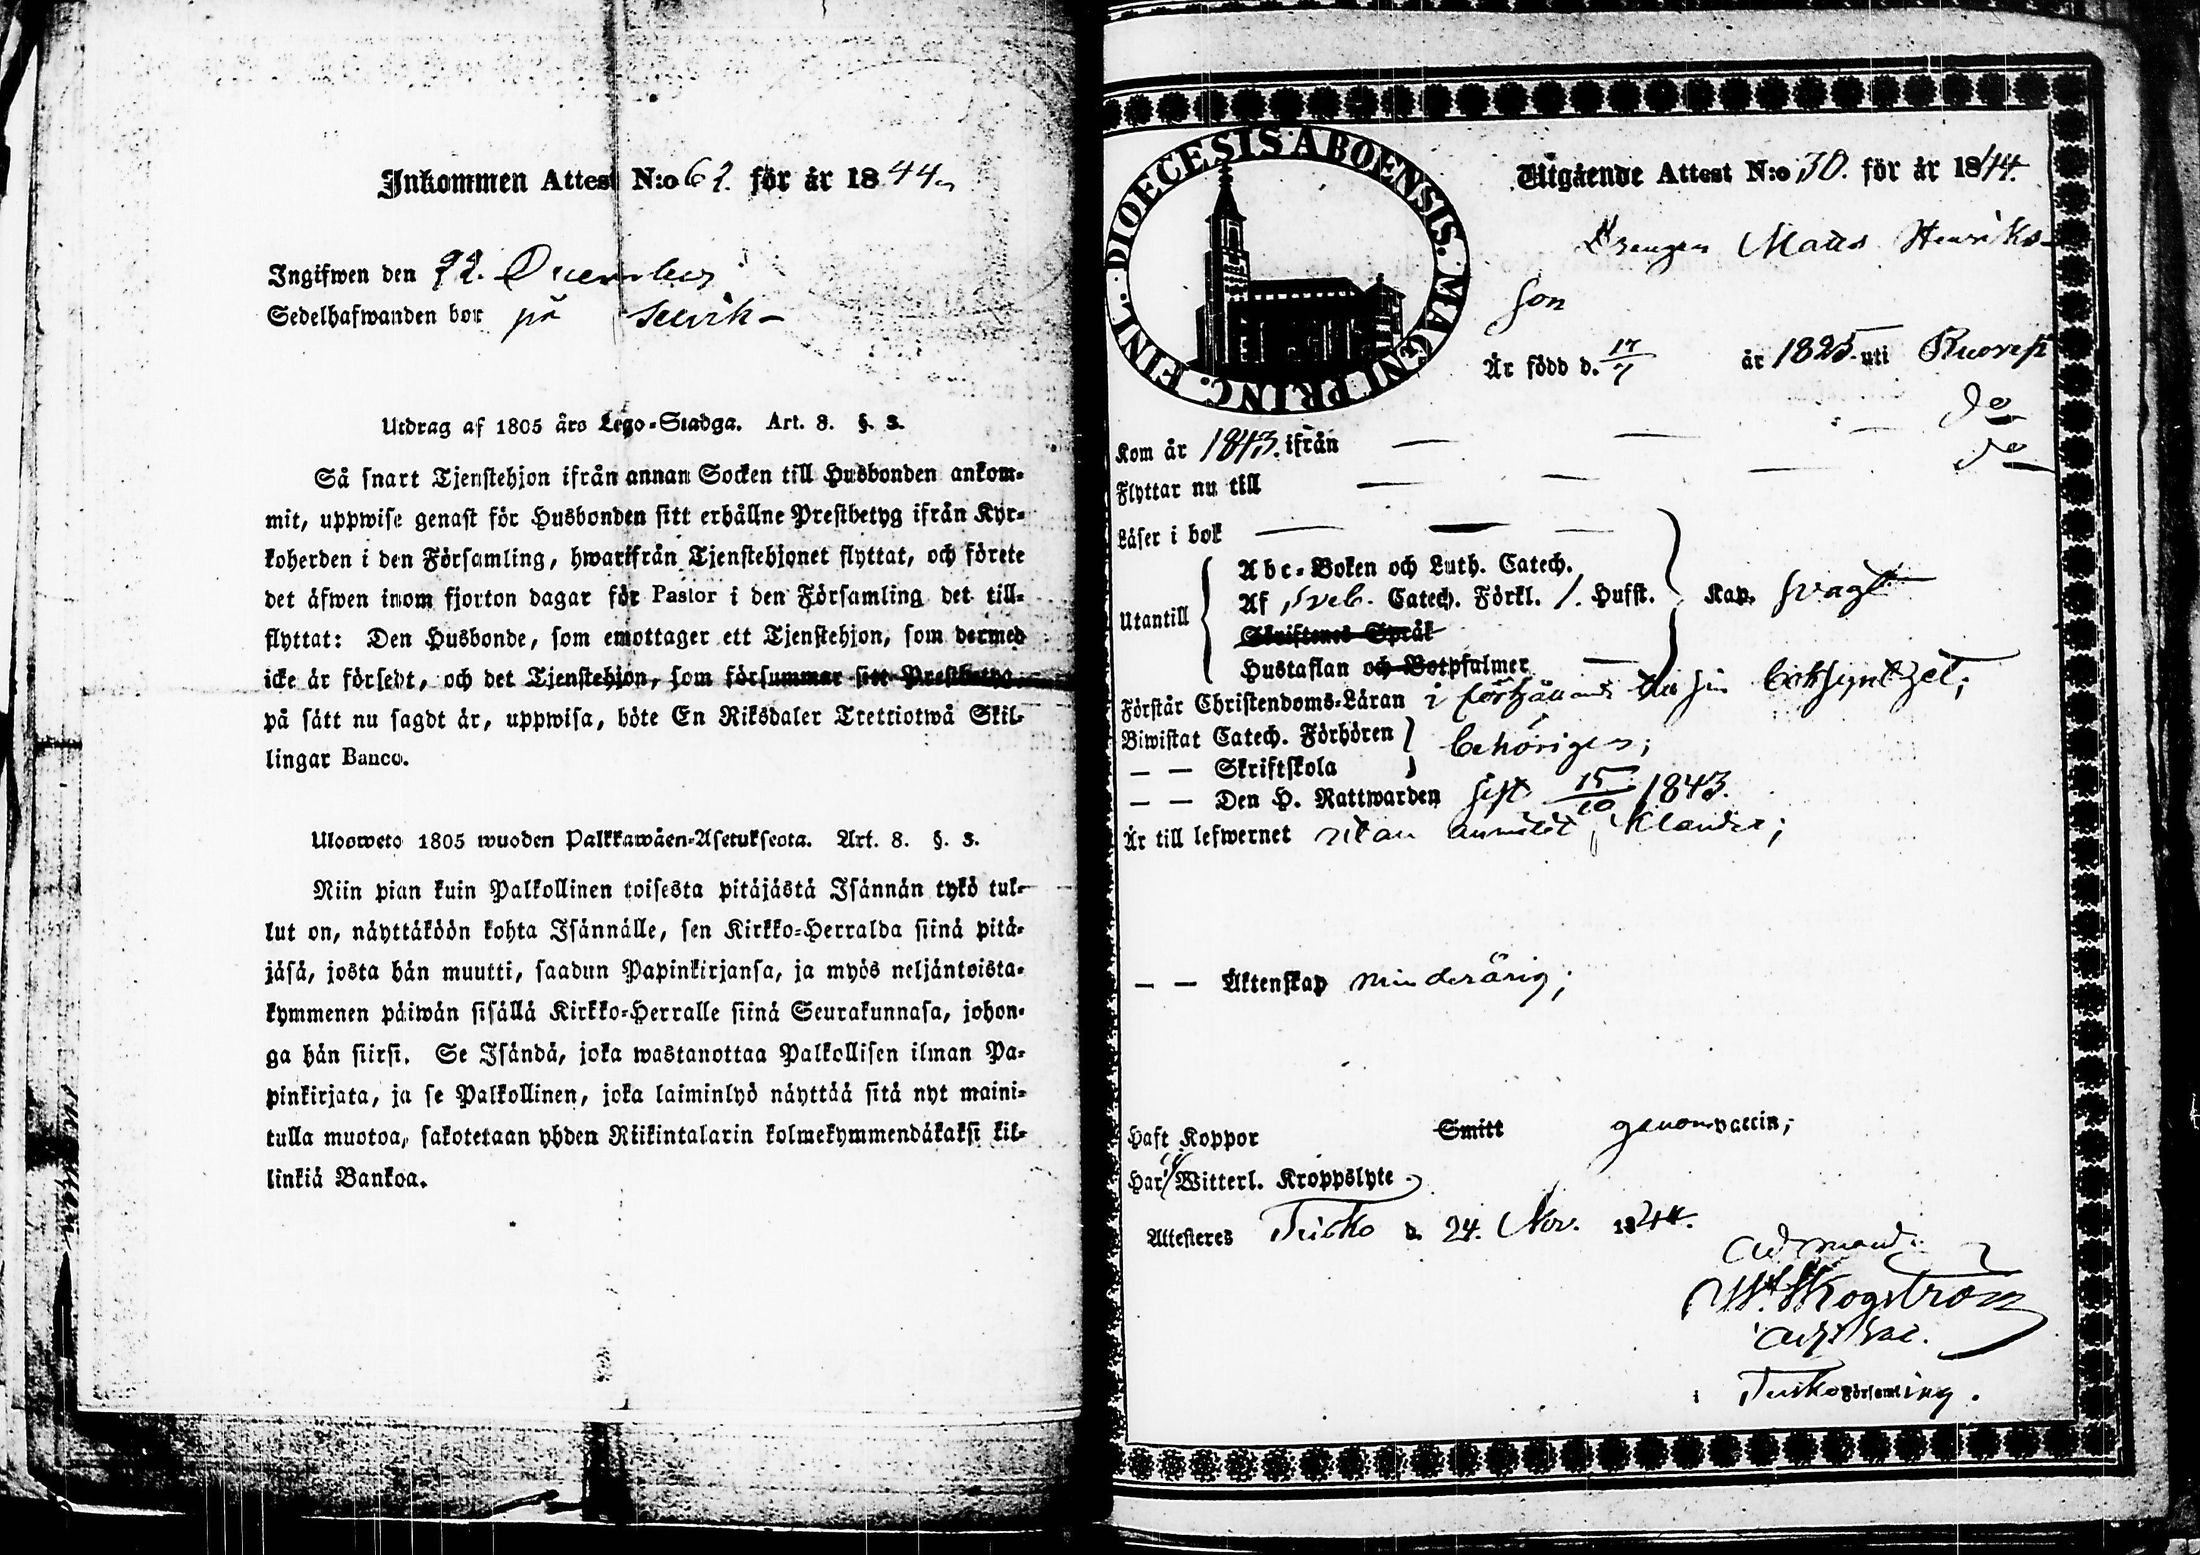 Inkommen Attest N:o 62. för år 1844
Ingifwen den 22. December
Sedelhafwanden bor på
Utdrag af 1805 års Lego-Stadga. Art. 8. §. 3.
Så snart Tjenstehjon ifrån annan Socken till Husbonden ankom-
mit, uppwise genast för Husbonden sitt erhållne Prestbetyg ifrån Kyr-
koherden i den Församling, hwarifrån Tjenstehjonet flyttat, och förete
det äfwen inom fjorton dagar för Pastor i den Församling det till-
flyttat: Den Husbonde, som emottager ett Tjenstehjon, som dermed
icke är försedt, och det Tjenstehjon, som försummar sitt Prestbetyg,
på sätt nu sagdt är, uppwisa, böte En Riksdaler Trettiotwå Skil-
lingar Banco.
Ulosweto 1805 wuoden Palkkawäen-Asetuksesta. Art. 8. §. 3.
Niin pian kuin Palkollinen toisesta pitäjästä Isännän tykö tul-
lut on, näyttäköön kohta Isännälle, sen Kirkko-Herralda siinä pitä-
jäsä, josta hän muutti, saadun Papinkirjansa, ja myös neljäntoista-
kymmenen päiwän sisällä Kirkko-Herralle siinä Seurakunnasa, johon-
ga hän siirsi. Se Isändä, joka wastanottaa Palkollisen ilman Pa-
pinkirjata, ja se Palkollinen, joka laiminlyö näyttää sitä nyt maini-
tulla muotoa, sakotetaan yhden Riikintalarin kolmekymmendäkaksi kil-
linkiä Bankoa.
DIOECESIS ABOENSIS. MAGNI PRINC. FINL.
Utgående Attest N:o 30. för år 1844.
Drengen Matts Henriks-
son
Är född d. 17/7 år 1825 uti
Kom år 1843. ifrån — — — do
Flyttar nu till — — — do
Läser i bok — — —
Utantill
Abc-Boken och Luth. Catech.
Af Sveb. Catech. Förkl. /. Hufst. Kap. svagt
Skriftenes Språk
Hustaflan och Botpsalmer —
Förstår Christendoms-Läran i
Biwistat Catech. Förhören behörigen;
— — Skriftskola
— — Den H. Nattwarden sist 15/10 1843.
Är till lefwernet utan klander;
— — Äktenskap minderårig;
Haft Koppor Smitt genom vaccin;
Har Witterl. Kroppslyte
Attesteres d. 24. Nov. 1844.
Skogström
i Församling.